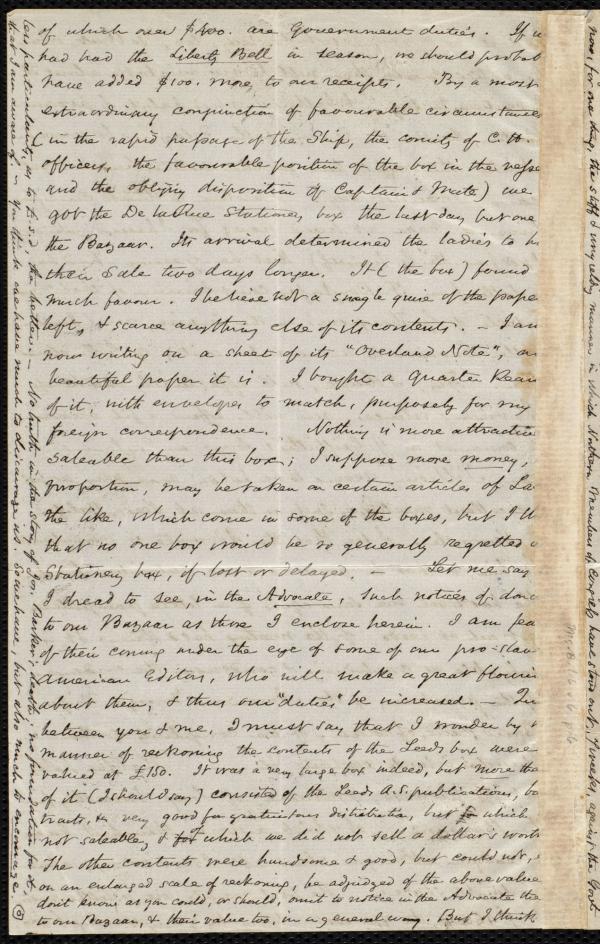 of which over $400. are Government duties. If
had had the Liberty Bell in season, we should probab
have added $100. more, to our receipts. By a most
extraordinary conjunction of favourable circumstance
(in the rapid passage of the Ship, the comity of C. H.
officers, the favourable position of the box in the vesse
and the obliging disposition of Captain & Mate) we
got the De la Rue Stationery box the last day but one
the Bazaar. Its arrival determined the ladies to
their Sale two days longer. It (the box) found
much favour. I believe not a single quire of the pape
left, & scarce anything else of its contents. – I am
now writing on a sheet of its "Overland Note", a
beautiful paper it is. I bought a Quarter Ream
of it, with envelopes to match, purposely for my
foreign correspondence. Nothing is more attractive
saleable than this box; I suppose more money,
proportion, may be taken on certain articles of La
the like, which come in some of the boxes, but I th
that no one box would be so generally regretted
Stationery box, if lost or delayed. – Let me say
I dread to see, in the Advocate, such notices of dona
to our Bazaar as those I enclose herein. I am fea
of their coming under the eye of some of our pro-slav
American Editors, who will make a great flouris
about them, & thus our "duties" be increased. –
between you & me, I must say that I wonder by
manner of reckoning the contents of the Leeds box were
valued at £150. It was a very large box indeed, but more tha
of it (I should say) consisted of the Leeds A.S. publications,
tracts, & very good for gratuitous distribution, but which
not saleable & for which we did not sell a dollar's worth
The other contents were handsome & good, but could not,
on an enlarged scale of reckoning, be adjudged of the above value
don't know as you could, or should, omit to notice in the Advocate the
to our Bazaar, & their value too, in a general way. But I think
less particularly, as to £.s.d., the better. – No truth in the story of Jos. Barker's death; no foundation for it
that I am aware of. You think we have much to discourage us. So we have, but also much to encourage.
now, for one thing, the stiff & unyielding manner in which Northern Members of Congress have stood out, weeks, against the Gov